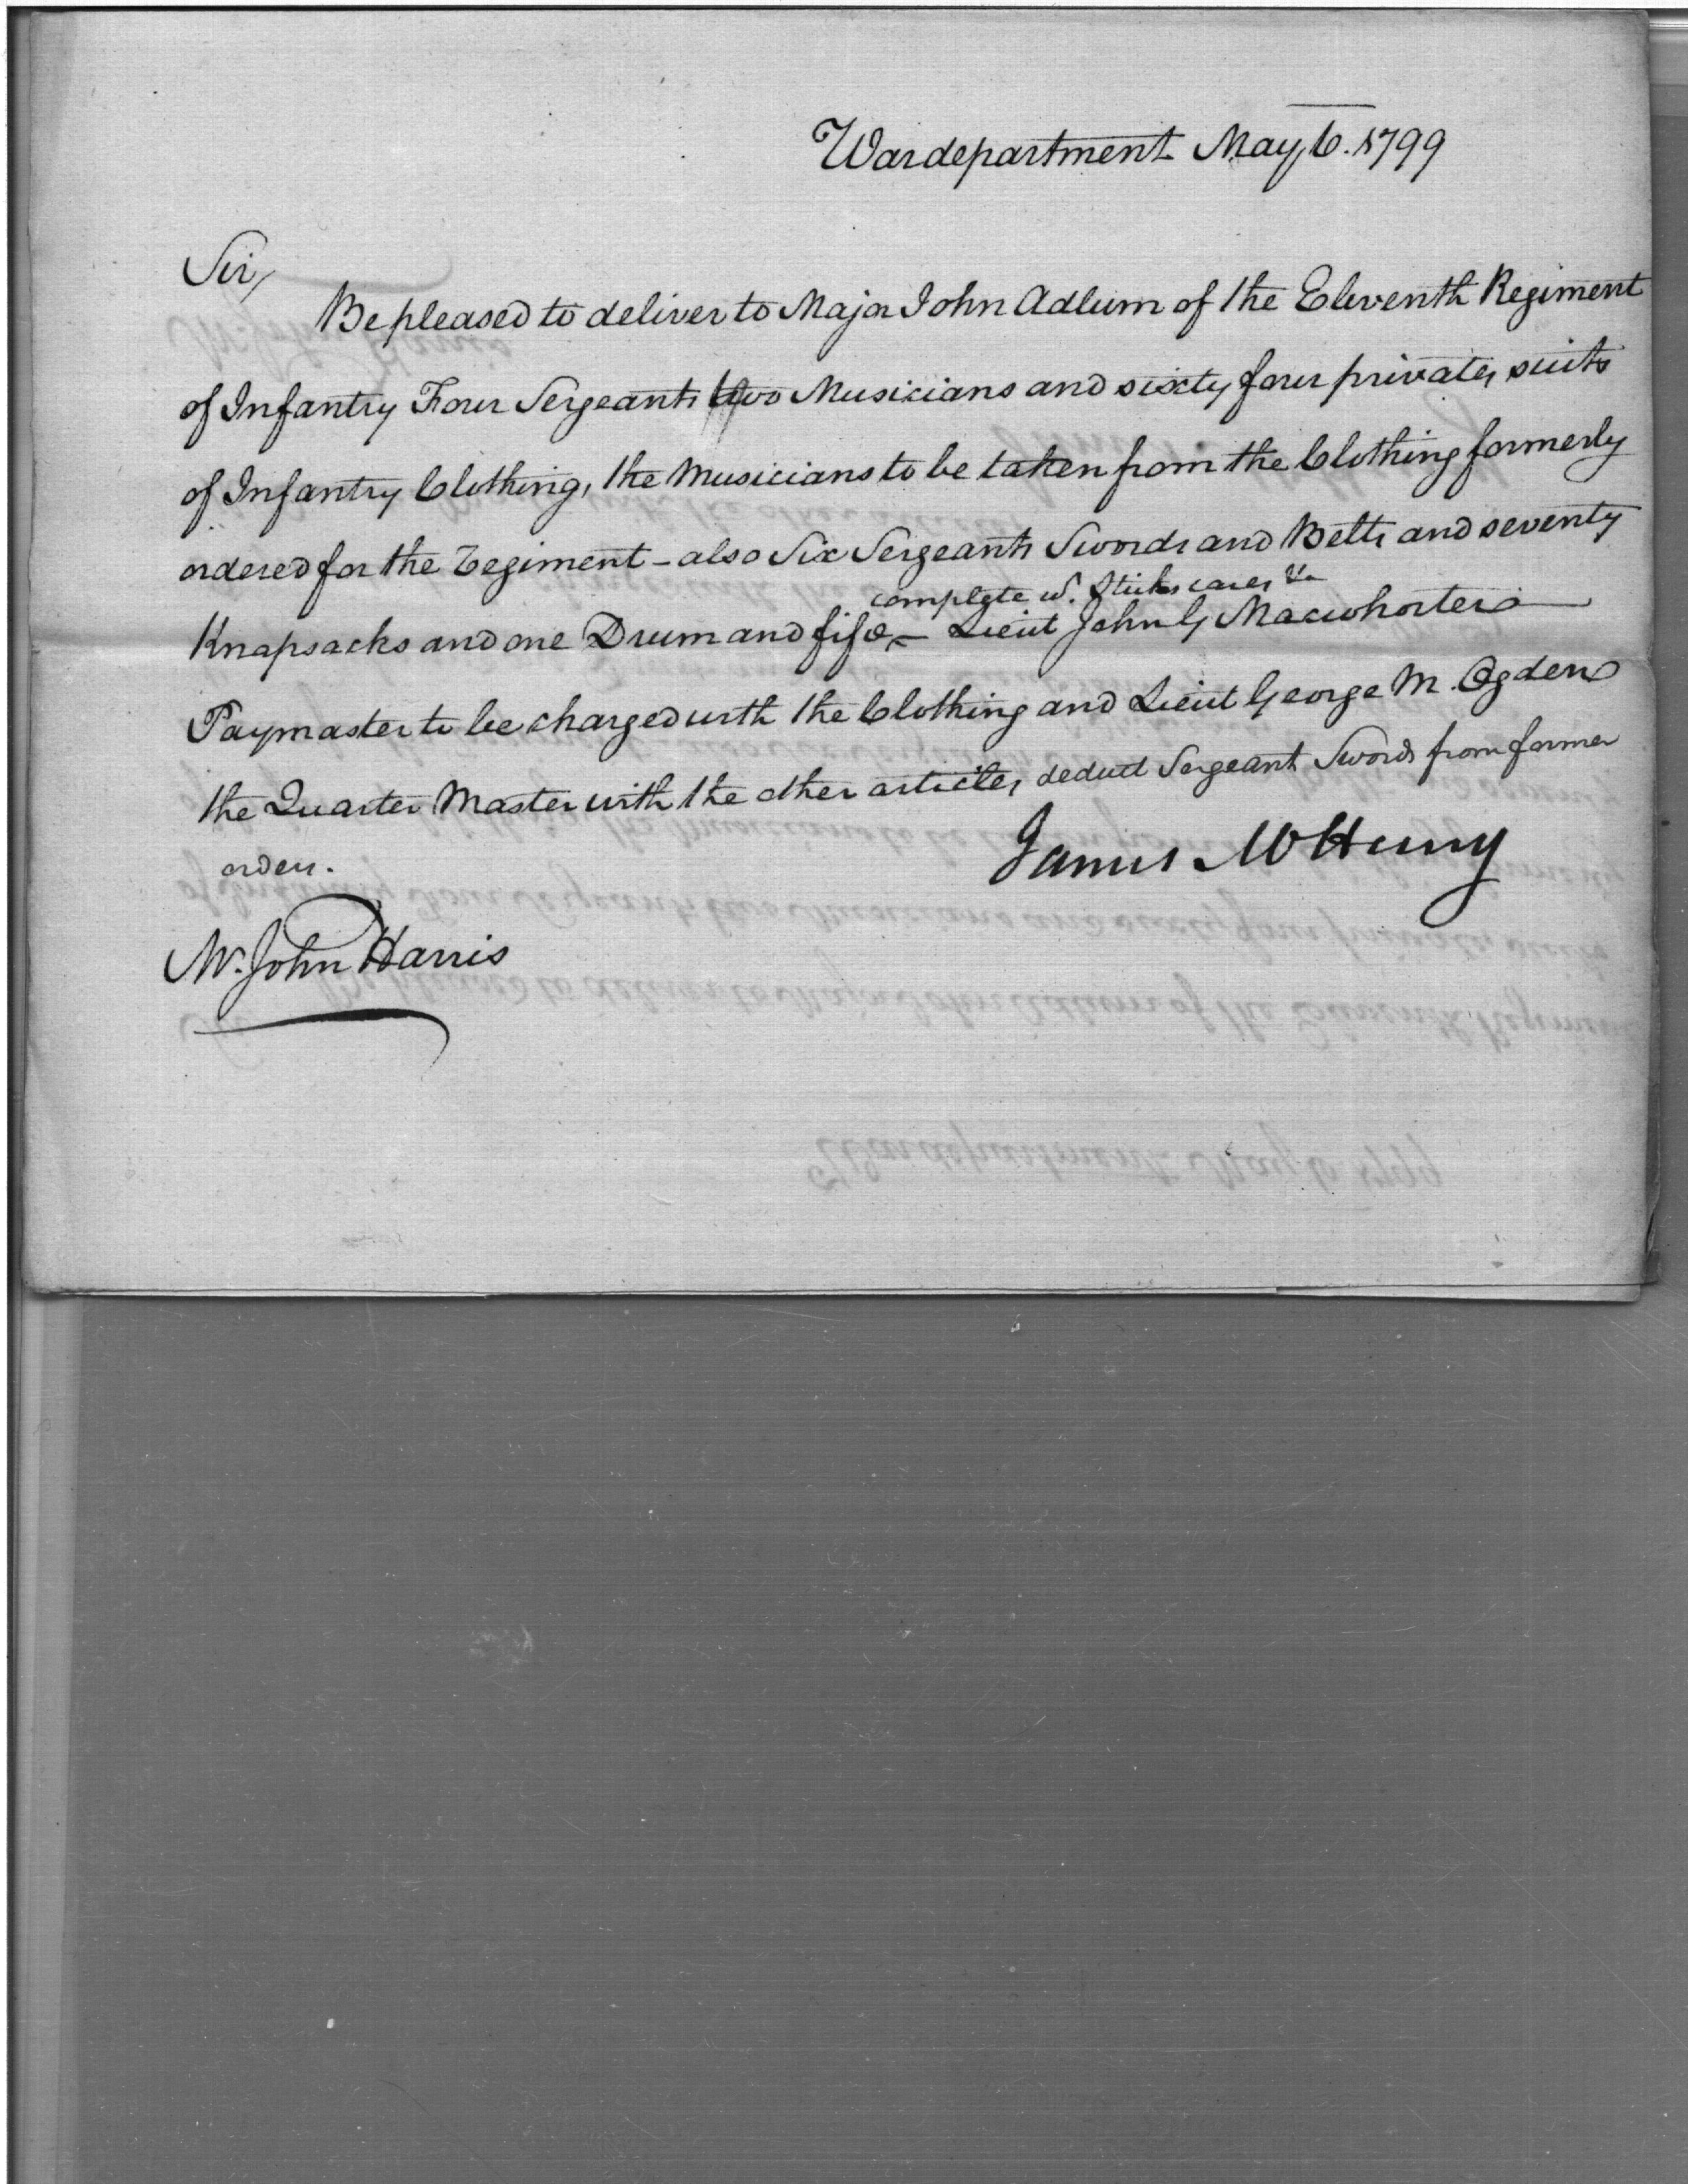 Wardepartment May 6. 1799
Sir,
Be pleased to deliver to Major John Adlum of the Eleventh Regiment
of Infantry Four Sergeants two Musicians and sixty four privates suits
of Infantry Clothing, the Musicians to be taken from the Clothing formerly
ordered for the Regiment - also Six Sergeants Swords and Belts and seventy
complete w. Sticks cases &c
Knapsacks and one Drum and fife - Lieut John G Macwhorter
Paymaster to be charged with the Clothing and Lieut George M. Ogden
the Quarter Master with the other articles, deduct Sergeant Swords from former
order.
James McHenry
Mr. John Harris